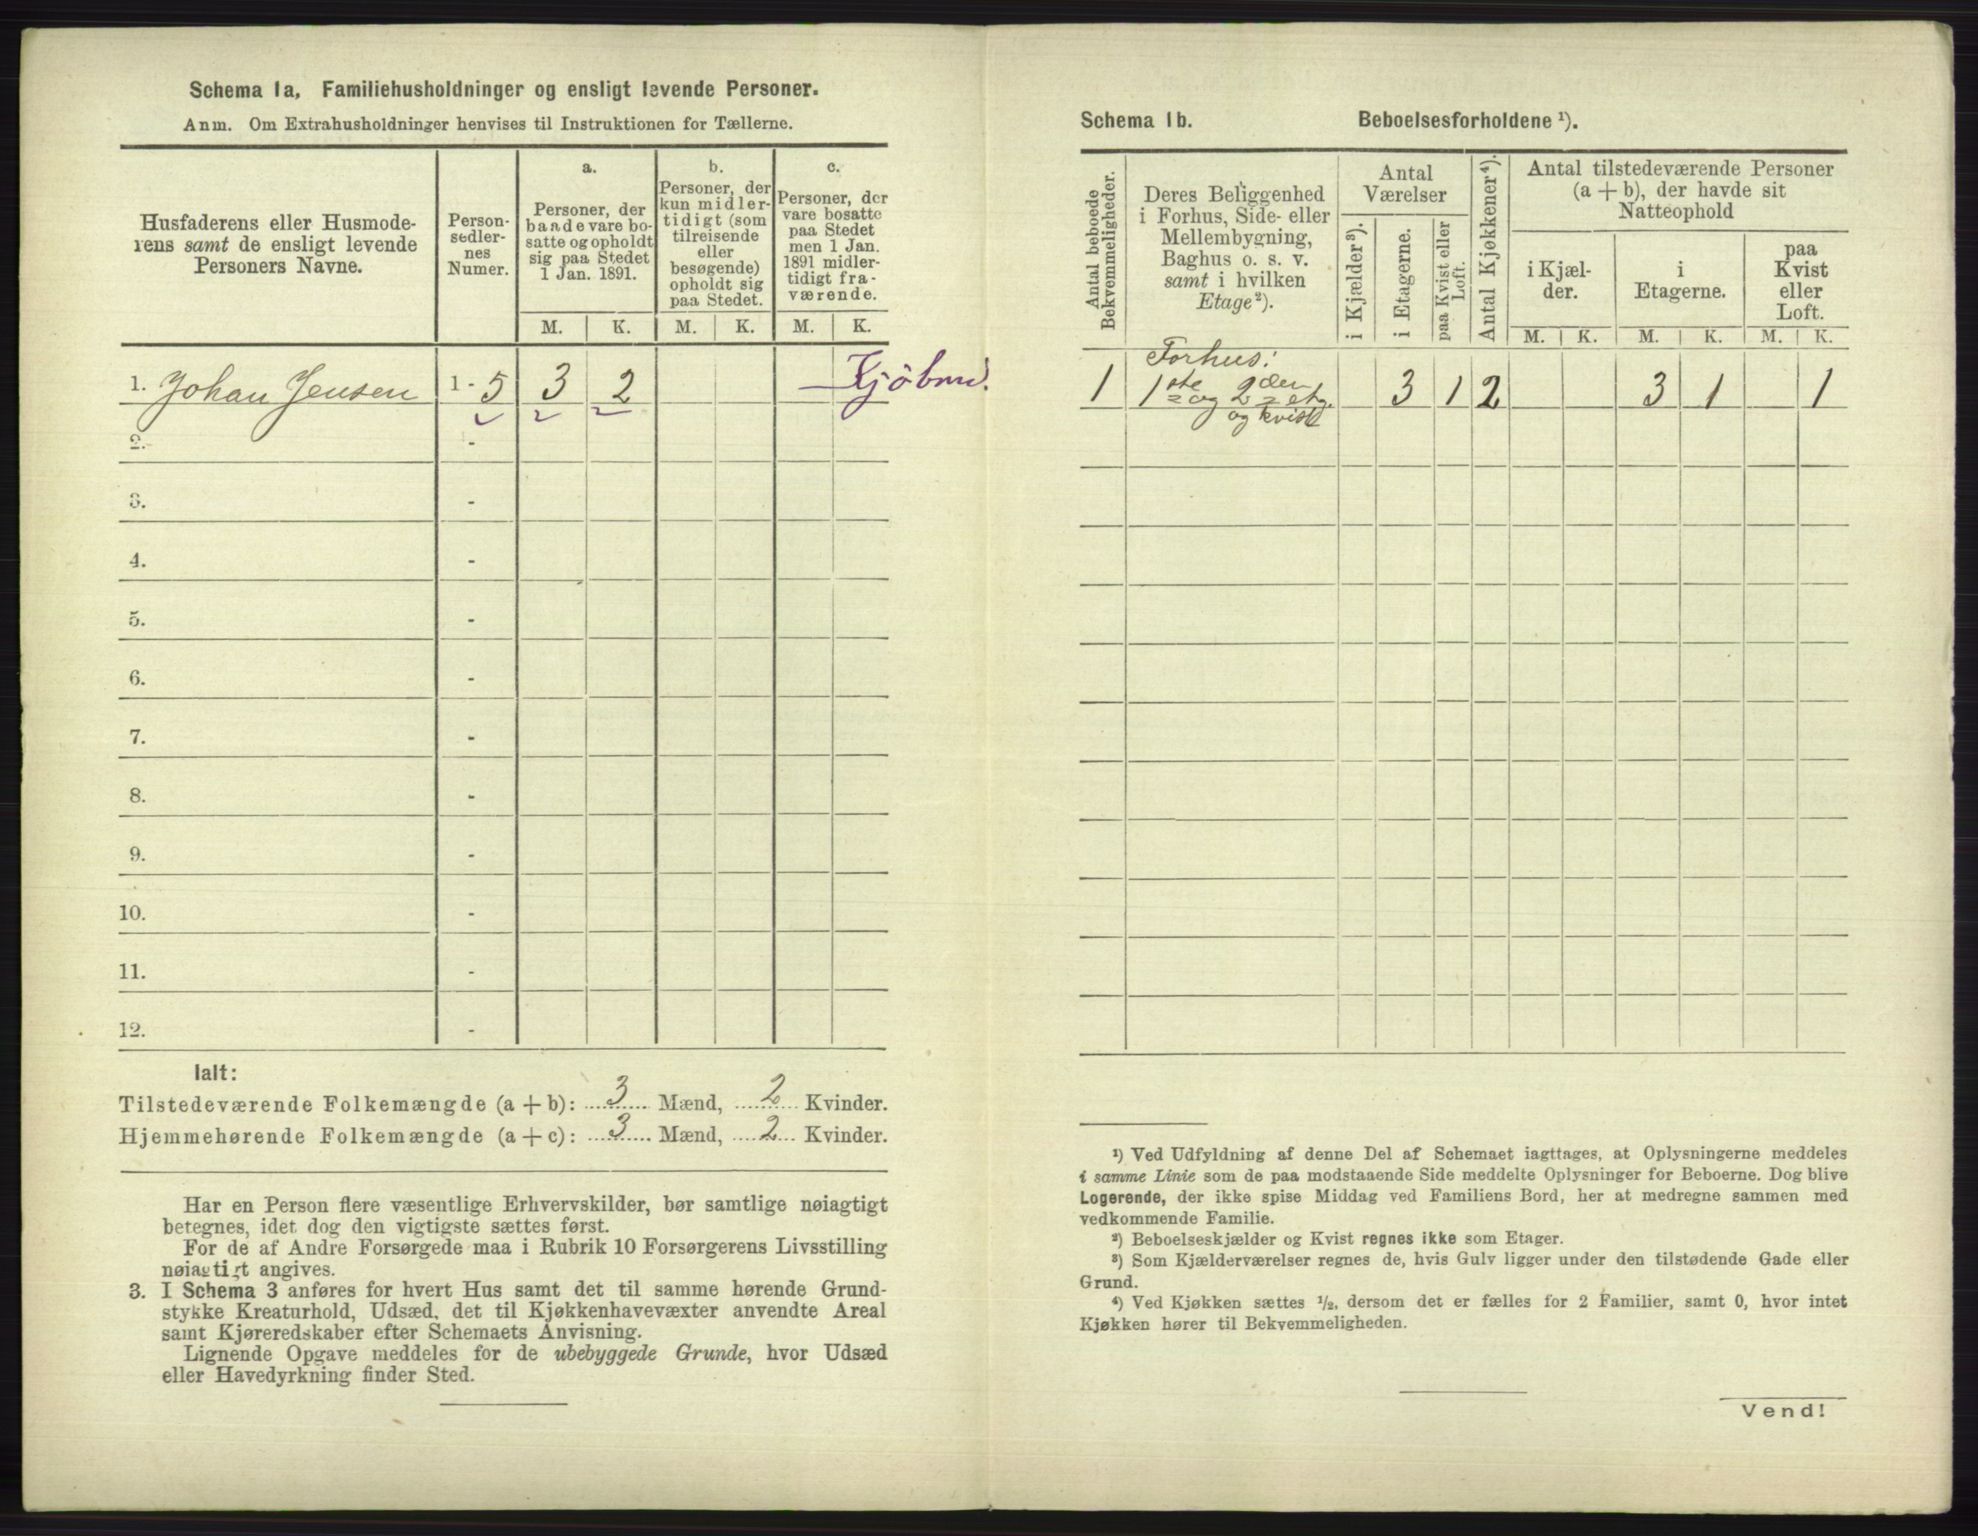 Schema 1a, Familiehusholdninger og ensligt levende Personer.
Anm. Om Extrahusholdninger henvises til Instruktionen for Tællerne.
Husfaderens eller Husmode-
rens samt de ensligt levende
Personers Navne.
Person-
sedler-
nes
Numer.
a.
Personer, der
baade vare bo-
satte og opholdt
sig paa Stedet
1 Jan. 1891.
b.
Personer, der
kun midler-
tidigt (som
tilreisende
eller
besøgende)
opholdt sig
paa Stedet.
c.
Personer, der
vare bosatte
paa Stedet
men 1 Jan.
1891 midler-
tidigt fra-
værende.
M. K. M. K. M. K.
1. Johan Jensen 1 - 5 3 2 Kjöbmd.
2. -
3. -
4. -
5. -
6. -
7. -
8. -
9. -
10. -
11. -
12. -
Ialt:
Tilstedeværende Folkemængde (a + b): 3 Mænd, 2 Kvinder.
Hjemmehørende Folkemængde (a + c): 3 Mænd, 2 Kvinder.
Har en Person flere væsentlige Erhvervskilder, bør samtlige nøiagtigt
betegnes, idet dog den vigtigste sættes først.
For de af Andre Forsørgede maa i Rubrik 10 Forsørgerens Livsstilling
nøiagtigt angives.
3. I Schema 3 anføres for hvert Hus samt det til samme hørende Grund-
stykke Kreaturhold, Udsæd, det til Kjøkkenhavevæxter anvendte Areal
samt Kjøreredskaber efter Schemaets Anvisning.
Lignende Opgave meddeles for de ubebyggede Grunde, hvor Udsæd
eller Havedyrkning finder Sted.
Schema 1b. Beboelsesforholdene ¹).
Antal beboede
Bekvemmeligheder.
Deres Beliggenhed
i Forhus, Side- eller
Mellembygning,
Baghus o. s. v.
samt i hvilken
Etage²).
Antal
Værelser
i Kjælder³).
i Etagerne.
paa Kvist eller
Loft.
Antal Kjøkkener⁴).
Antal tilstedeværende Personer
(a + b), der havde sit
Natteophold
i Kjæl-
der.
i
Etagerne.
paa
Kvist
eller
Loft.
M. K. M. K. M. K.
Forhus:
1 1ste og 2den etg. 3 1 2 3 1 1
og kvist
¹) Ved Udfyldning af denne Del af Schemaet iagttages, at Oplysningerne meddeles
i samme Linie som de paa modstaaende Side meddelte Oplysninger for Beboerne. Dog blive
Logerende, der ikke spise Middag ved Familiens Bord, her at medregne sammen med
vedkommende Familie.
²) Beboelseskjælder og Kvist regnes ikke som Etager.
³) Som Kjælderværelser regnes de, hvis Gulv ligger under den tilstødende Gade eller
Grund.
⁴) Ved Kjøkken sættes ½, dersom det er fælles for 2 Familier, samt 0, hvor intet
Kjøkken hører til Bekvemmeligheden.
Vend!